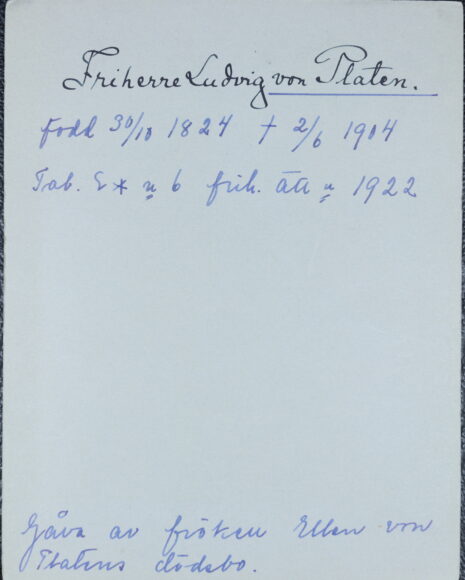 Friherre Ludvig von Platen.
född 30/10 1824 † 2/6 1904
Tab. 2 * n 6 frih. ätt n 1922
Gåva av fröken Ellen von
Platens dödsbo.